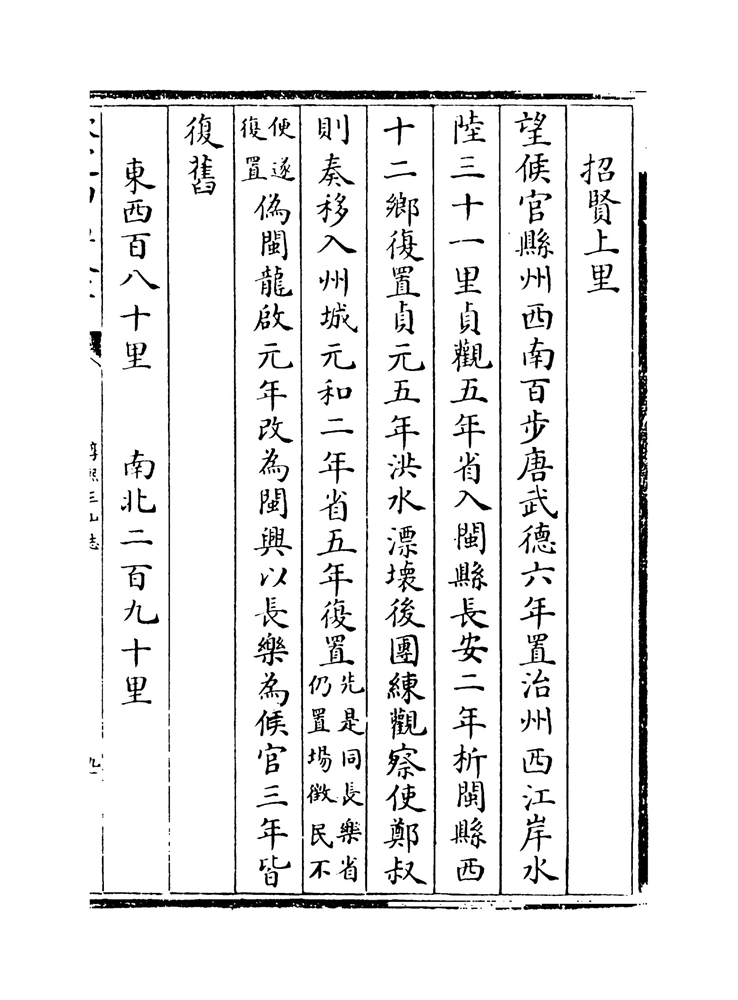 招賢上里
望候官縣州西南百步唐武德六年置治州西江岸水
陸三十一里貞觀五年省入閩縣長安二年析閩縣西
十二鄉復置貞元五年洪水漂壞後團練觀察使鄭叔
則奏移入州城元和二年省五年復置先是同長樂省仍置場徵民不
便遂復置偽閩龍啟元年改為閩興以長樂為候官三年皆
復舊
東西百八十里　南北二百九十里
淳熙三山志